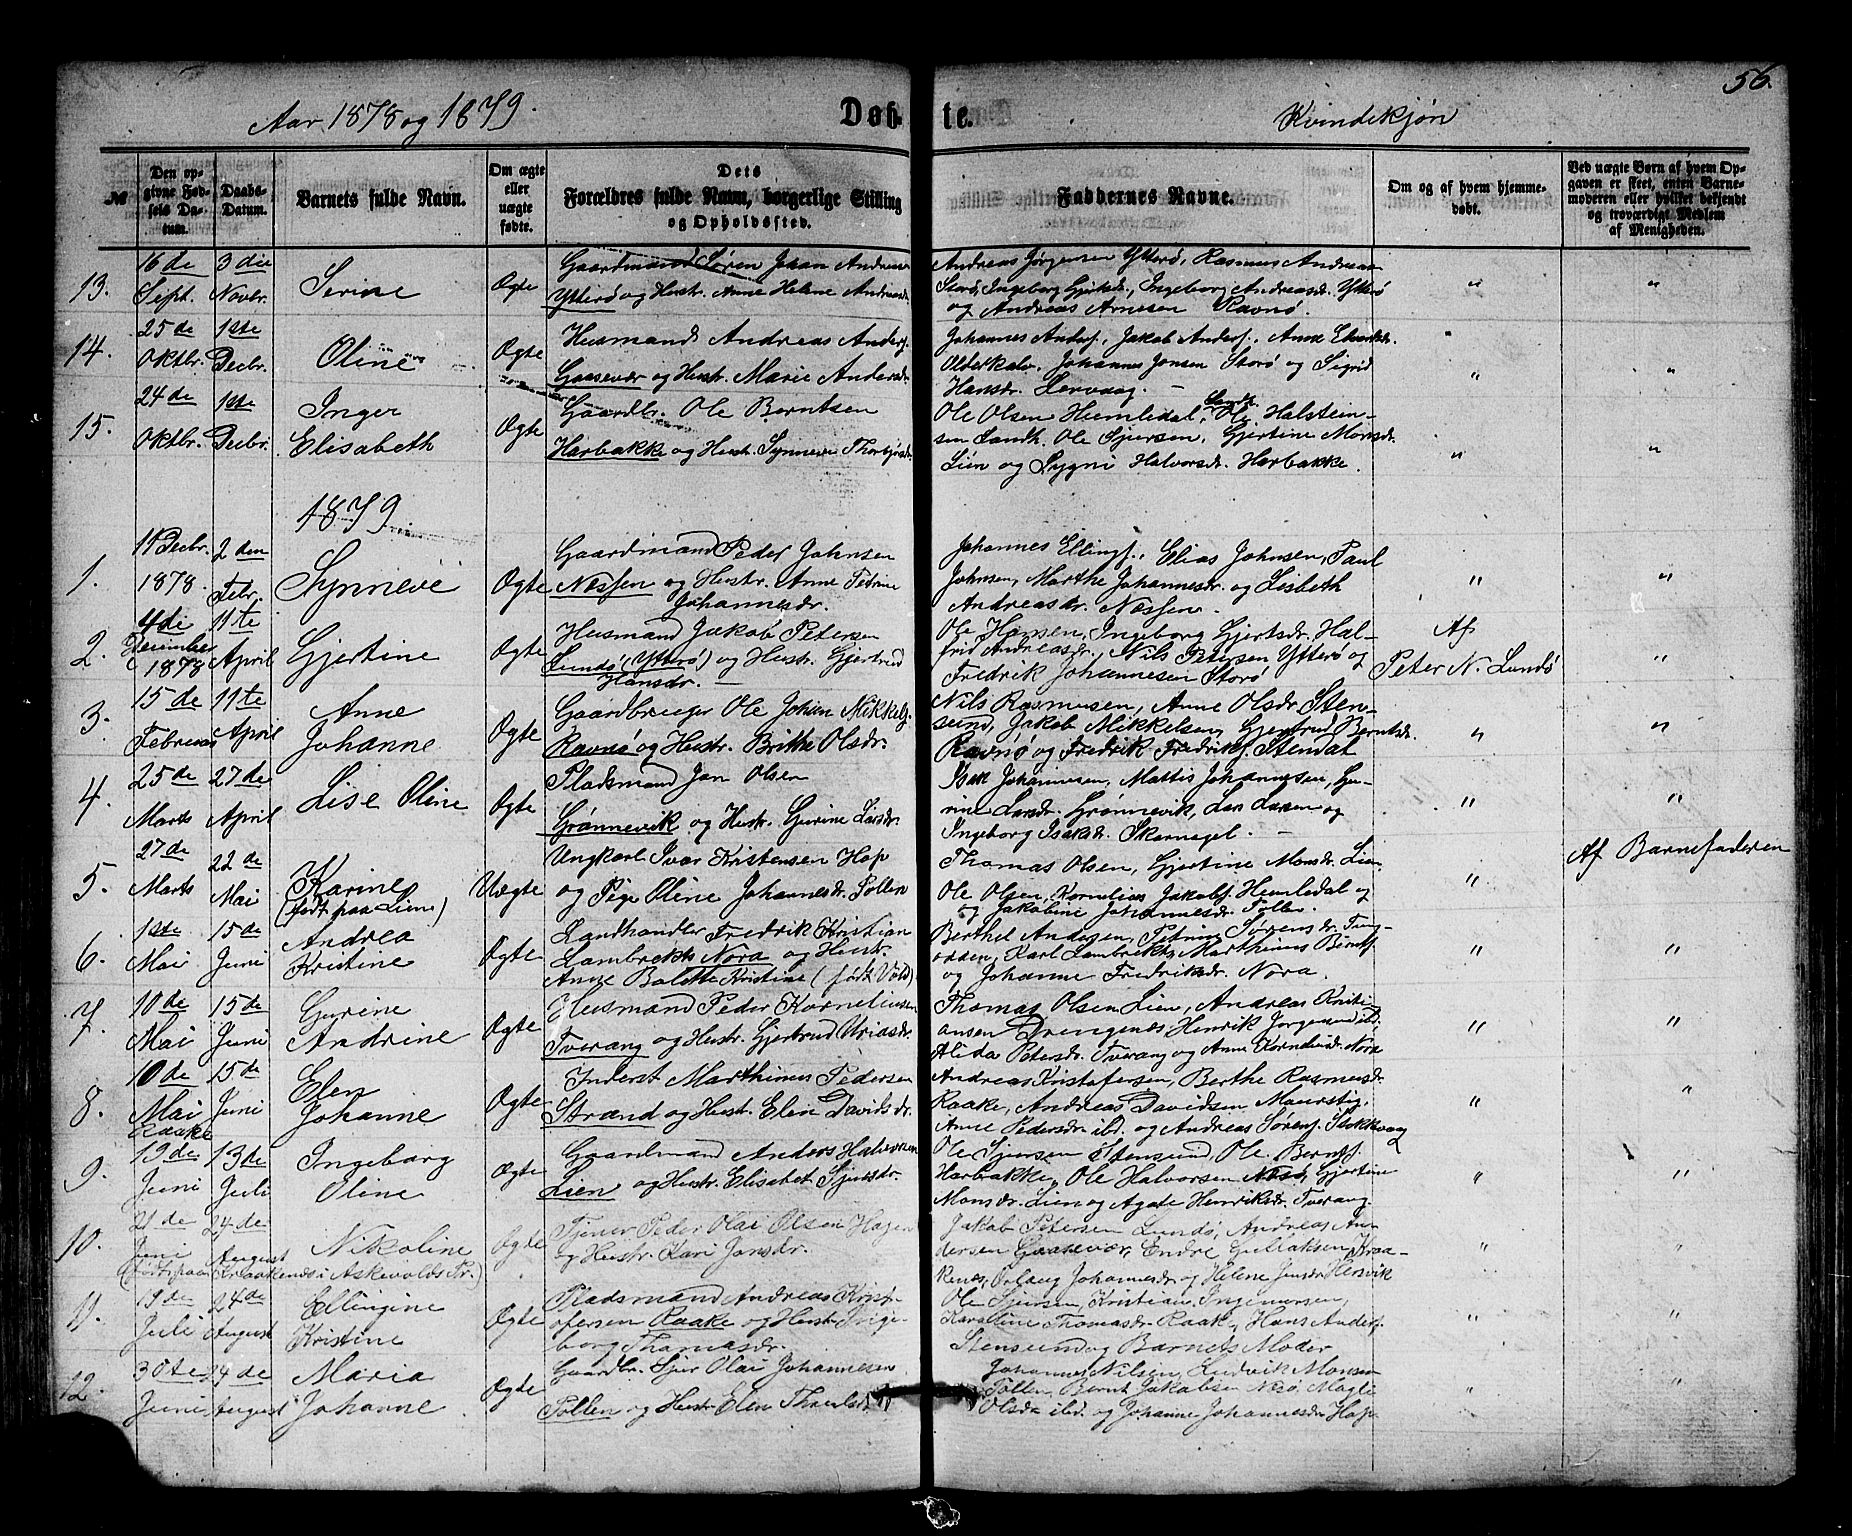 56.
Aar 1878 og 1879.
Døbte.
Kvindekjøn
№
Den opgivne Fødsels Datum.
Daabs-Datum.
Barnets fulde Navn.
Om ægte eller uægte fødte.
Dets Forældres fulde Navn, borgerlige Stilling og Opholdssted.
Faddernes Navne.
Om og af hvem hjemmedøbt.
Ved uægte Børn af hvem Opgaven er skeet, enten Barnemoderen eller hvilket bekjendt og troværdigt Medlem af Menigheden.
13.
16de Sept.
3die Novbr.
Serine
Ægte
Gaardmand Søren Johan Andreas
Ytterø og Hustr. Anne Helene Andreasdr.
Andreas Jørgensen Ytterø, Rasmus Andreas
Storø, Ingeborg Gjertsdr., Ingeborg Andreasdr. Ytterø
og Andreas Arnesen Ravnø.
" "
14.
25de Oktbr.
1ste Decbr.
Oline
Ægte
Husmand Andreas Anders.
Gaasevær og Hustr. Marie Andersdr.
Johannes Anders., Jakob Anders., Anne
Olderkalv, Johannes Jonsen Storø og Sigrid
Hansdr. Lervaag. —
" "
15.
24de Oktbr.
1ste Decbr.
Inger
Elisabeth
Ægte
Gaardbr. Ole Berntsen
Harbakke og Hustr. Synneve Thorbjørnsdr.
Ole Olsen Hemledal, Ole Halstein-
sen Sandh. Ole Sjursen, Gjertine Monsdr.
Lien og Sygni Halvorsdr. Harbakke.
" "
1879.
1.
11 Decbr. 1878.
2den Febr.
Synneve
Ægte
Gaardmand Peder Johnsen
Nessen og Hustr. Anne Petrine
Johannesdr.
Johannes Ellings., Elias Johnsen, Paul
Johnsen, Marthe Johannesdr. og Lisbeth
Andreasdr. Nessen.
" "
2.
4de December 1878
11te April
Gjertine
Ægte
Husmand Jakob Petersen
Lundø (Ytterø) og Hustr. Gjertrud
Hansdr. —
Ole Hansen, Ingeborg Gjertsdr. Hal-
frid Andreasdr., Nils Petersen Ytterø og
Fredrik Johannesen Storø
Af
Peter N. Lundø
"
3.
15de Februar
11te April
Anne
Johanne
Ægte
Gaardbruger Ole Johan Mikkels.
Ravnø og Hustr. Brithe Olsdr.
Nils Rasmusen, Anne Olsdr. Sten-
sund, Jakob Mikkelsen, Gjertrud Berntsdr.
Ravnø og Fredrik Fredriks. Stendal
" "
4.
25de Marts
27de April
Lise Oline
Ægte
Pladsmand Jan Olsen
Grønnevik og Hustr. Gurine Larsdr.
Isak Johannesen, Mattis Johannesen, Gu-
rine Larsdr. Grønnevik, Lars Larsen og
Ingeborg Isaksdr. Skarnagel. —
" "
5.
27de Marts
22de Mai
Karine
(født paa Lien)
Uægte
Ungkarl Ivar Kristensen Hop
og Pige Oline Johannesdr. Pollen
Thomas Olsen, Gjertine Monsdr. Lien
Ole Olsen, Kornelius Jakobs. Hemledal og
og Jakobine Johannesdr. Pollen.
"
Af Barnefaderen
6.
1ste Mai
15de Juni
Andrea
Kristine
Ægte
Landhandler Fredrik Kristian
Lambrekts. Nora og Hustr.
Anne Bolette Kristine (født Vold)
Berthel Andersen, Petrine Sørensdr. Tung-
odden, Karl Lambrikts, Marthinus Berents.
og Johanne Fredriksdr. Nora.
" "
7.
10de Mai
15de Juni
Gurine
Andrine
Ægte
Husmand Peder Korneliusen
Tverang og Hustr. Gjertrud Uriasdr.
Thomas Olsen Lien, Andreas Kristi-
ansen Drengenes, Henrik Jørgensen ibd.
Alida Petersdr. Tverang og Anne Korneliusdr. Nora
" "
8.
10de Mai
Raake
15de Juni
Elen
Johanne
Ægte
Inderst Marthinus Pedersen
Strand og Hustr. Elen Davidsdr.
Andreas Kristofersen, Berthe Rasmusdr.
Raake, Andreas Davidsen Maurstig,
Anne Pedersdr. ibd. og Andreas Sørens. Stokkevaag
" "
9.
19de Juni
13de Juli
Ingeborg
Oline
Ægte
Gaardmand Anders Halvorsen
Lien og Hustr. Elisabet Sjursdr.
Ole Sjursen Stensund, Ole Bernts.
Harbakke, Ole Halvorsen Nesø, Gjertine
Monsdr. Lien og Agate Henriksdr. Tverang.
" "
10.
21de Juni
24de August
Nikoline
(født paa Kraakenes i Askevolds Pr.)
Ægte
Tjener Peder Olai Olsen Hagen
og Hustr. Kari Jonsdr.
Jakob Petersen Lundø, Andreas An-
dersen Gaasevær, Endre Gullaksen Kraa-
kenes, Orlaug Johannesdr. og Helene Jensdr. Hersvik
" "
11.
19de Juli
24de August
Ellingine
Kristine
Ægte
Pladsmand Andreas Krist-
ofersen Raake og Hustr. Inge-
borg Thomasdr.
Ole Sjursen, Kristian Ingemorsen,
Karoline Thomasdr. Raake, Hans Anders.
Stensund og Barnets Moder
" "
12.
30te Juni
24de August
Maria
Johanne
Ægte
Gaardbr. Sjur Olai Johannesen
Pollen og Hustr. Elen
Johannes Nilsen, Ludvik Monsen
Pollen, Bernt Jakobsen Nesø, Magle
Olsdr. ibd. og Johanne Johannesdr. Hop.
" "